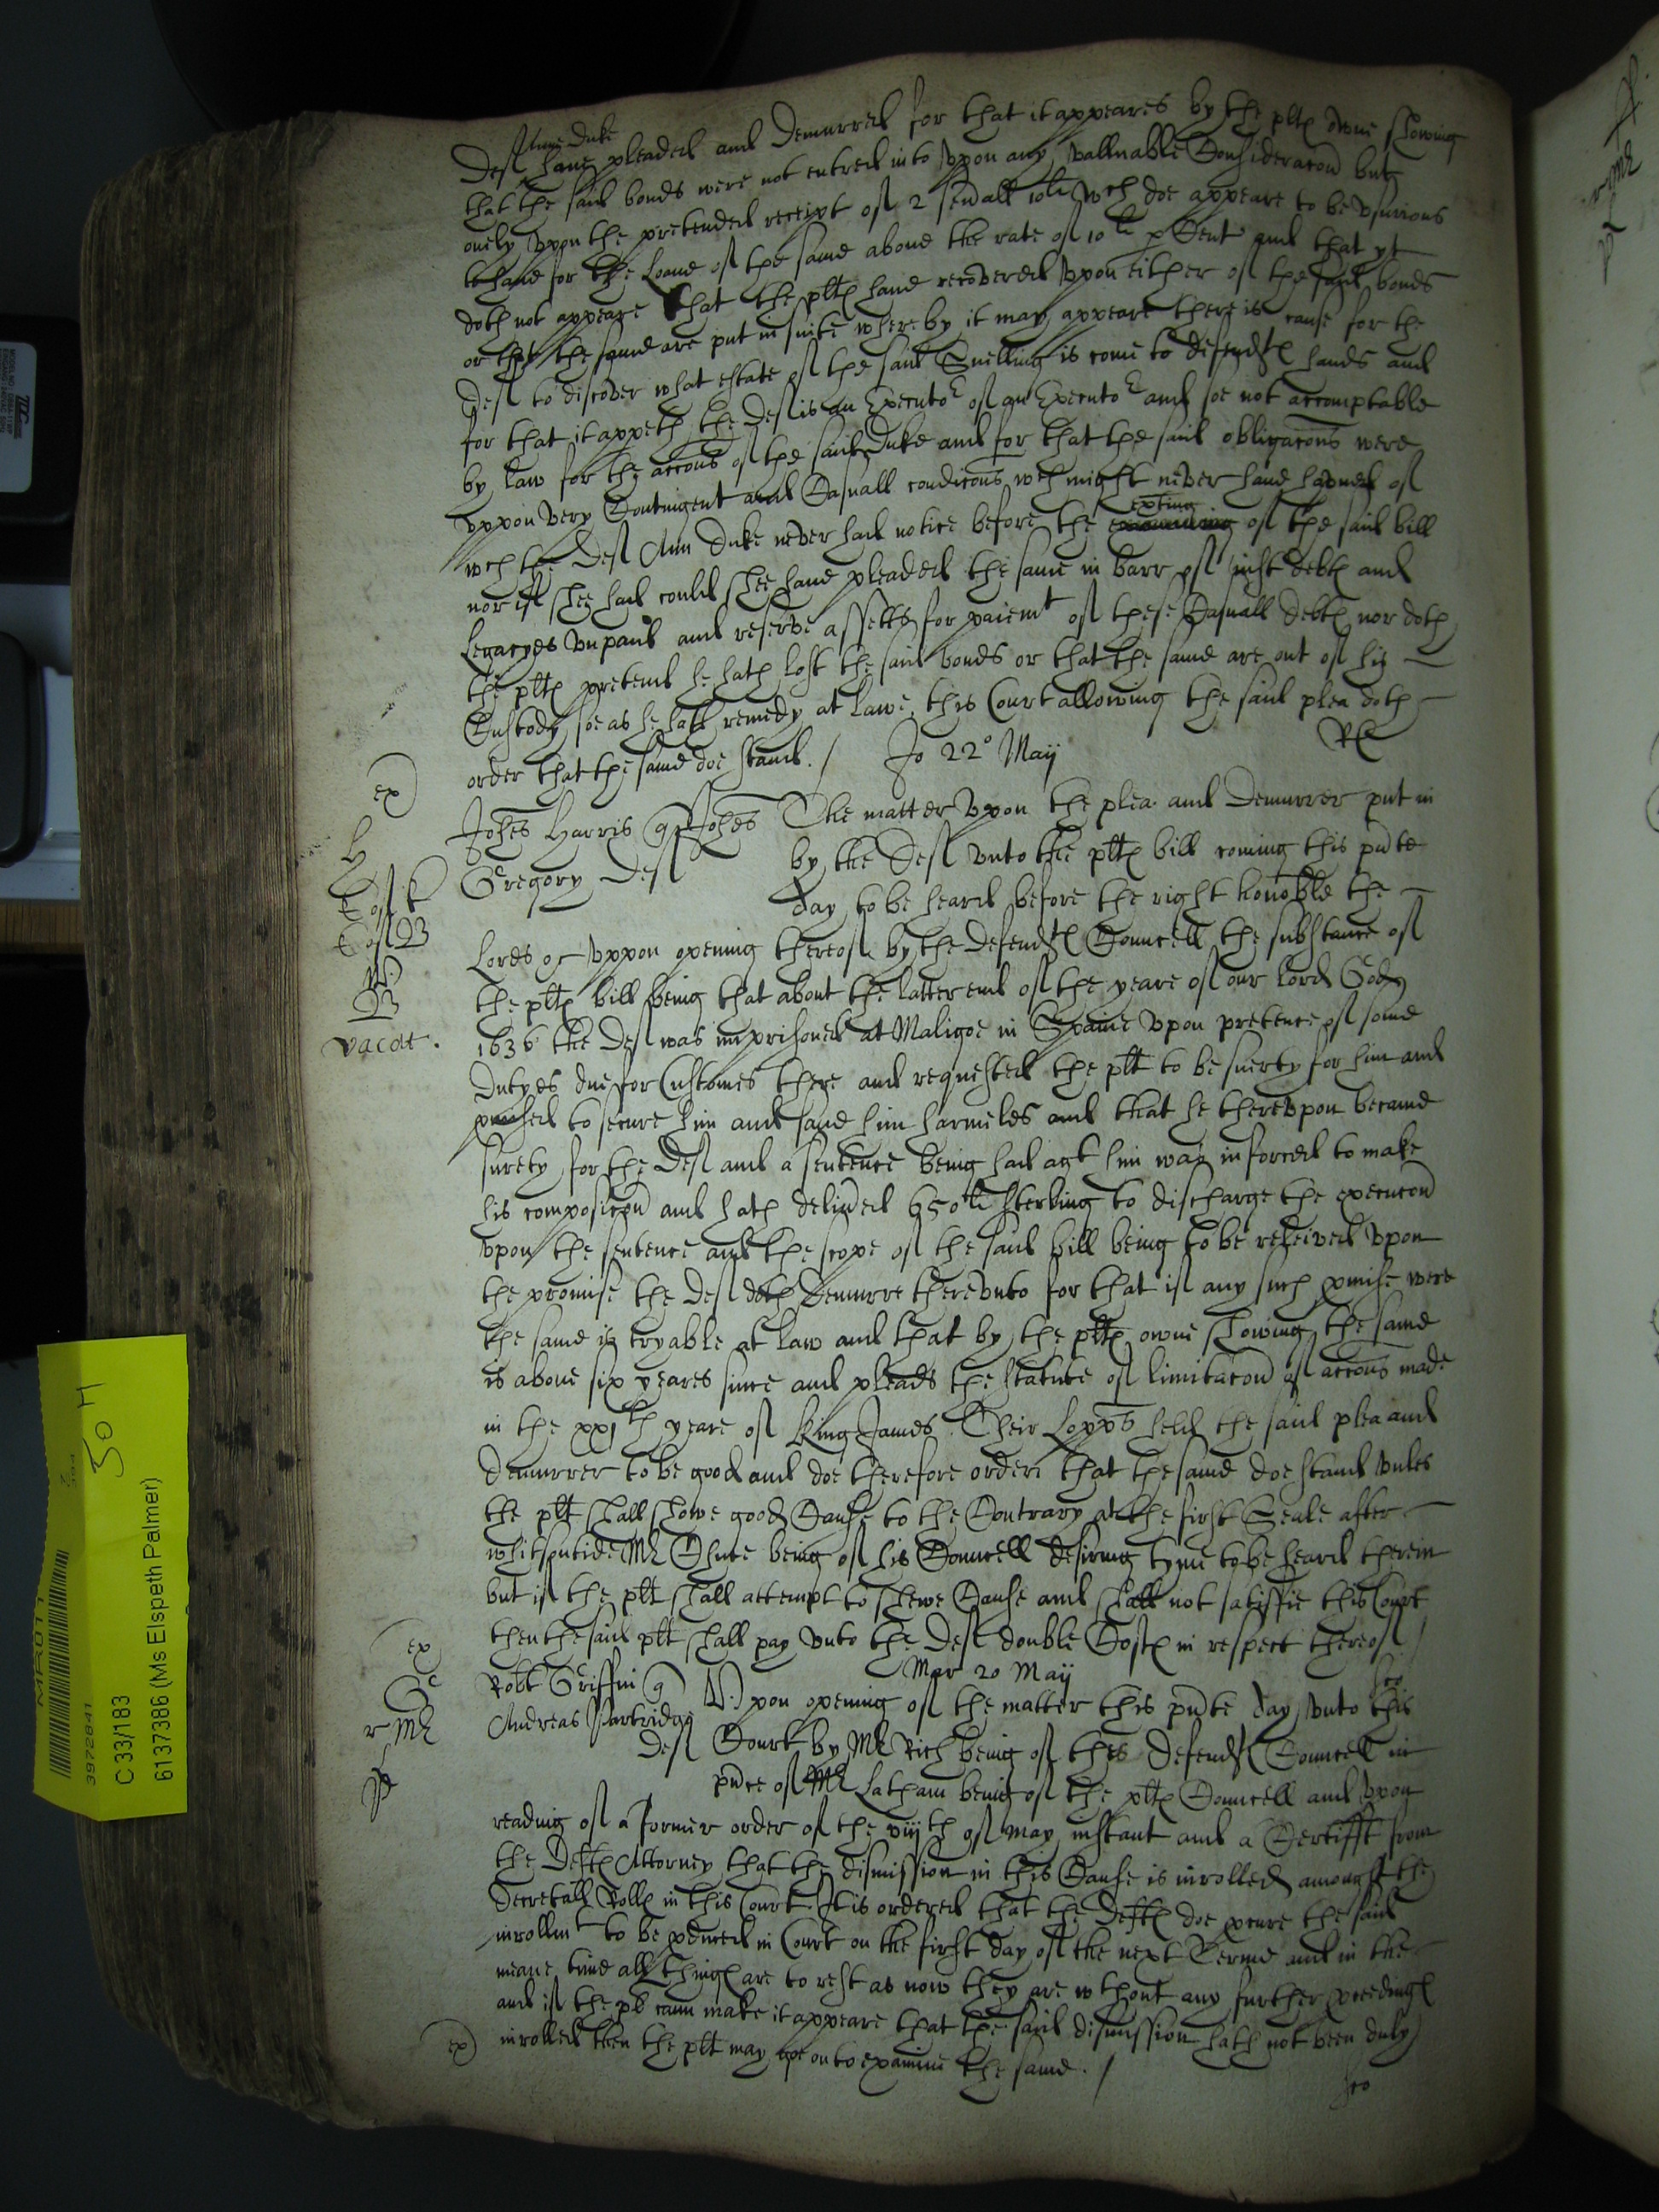 Anne Duke
Def haue pleaded and Demurred for that it appeares by the pltes owne showing
that the said bonds were not entred into vpon any valluable Consideracon but
onely vpon the pretended receipt of 2 seuall 10li wch doe appeare to be vsurious
to haue for the Loane of the same aboue the rate of 10li p Cent and that yt
doth not appeare that the pltes haue recovered vpon either of the said bonds
or that the same are put in suite whereby it may appeare there is cause for the
Def to discover what estate of the said Snelling is come to defendtes hands and
for that it appeth the Def is an Executor of an Executor and soe not accomptable
by law for the accons of the said Duke and for that the said obligacons were
vppon very Contingent and Casuall condicons wch might never haue hapned of
wch the Def Ann Duke never had notice before the exhiting of the said bill
nor if shee had could shee haue pleaded the same in barr of iust debtes and
Legacyes vnpaid and reserve assetts for paiemt of these Casuall debtes nor doth
the pltes pretend he hath lost the said bonds or that the same are out of his
Custody soe as he hath remedy at Lawe, this Court allowing the said plea doth
order that the same doe stand. /
Jo 22o May
ex
Johes Harris q Johes
Gregory Def
The matter vpon the plea and Demurrer put in
by the Def vnto the pltes bill coming this pnte
day to be heard before the right honoble the
Lords &c vppon opening thereof by the defendtes Councell the substance of
the pltes bill being that about the latter end of the yeare of our Lord God
1636 the Def was imprisoned at Maligoe in Spaine vpon pretence of some
Dutyes due for Customes there and requested the plt to be suerty for him and
pmised to secure him and saue him harmeles and that he therevpon became
surety for the Def and a sentence being had agt him was inforced to make
his composicon and hath deliued 650li sterling to discharge the execucon
vpon the sentence and the scope of the said bill being to be releived vpon
the promise the Def doth Demurre therevnto for that if any such pmise were
the same is tryable at Law and that by the pltes owne showing the same
is aboue six yeares since and pleads the statute of limitacon of accons made
in the xxjth yeare of King James. Their Lopps held the said plea and
Demurrer to be good and doe therefore order that the same doe stand vnles
the plt shall showe good Cause to the Contrary at the first Seale after
whitsontide Mr Chute being of his Councell desiring tyme to be heard therein
but if the plt shall attempt to shewe Cause and shall not satisfie this Court
then the said plt shall pay vnto the Def double Costes in respect thereof /
Vacat.
ex
Mar 20 May
Robt Griffin q
Andreas Partridge
Def
Vpon opening of the matter this pnte day vnto this
Court by Mr Rich being of thes Defendtes Councell in
pnce of Mr Latham being of the pltes Councell and vpon
reading of a former order of the viijth of May instant and a Certifft from
the Deftes Attorney that the dismission in this Cause is inrolled amongst the
Decretall Rolles in this Court It is ordered that the Deftes doe pcure the said
inrollmt to be pduced in Court on the first day of the next Terme and in the
meane time all thinges are to rest as now they are wthout any further pceedinges
and if the plt cann make it appeare that the said dismission hath not been duly
inrolled then the plt may goe on to examine the same. /
ex
MR011
3972841
C 33/183
6137386 (Ms Elspeth Palmer)
30 H